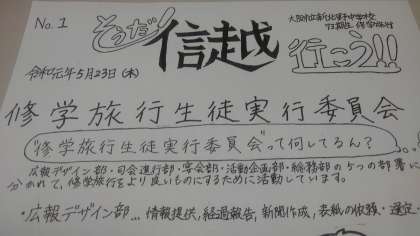 No.1
そうだ！
信越
行こう!!
大阪市立新北野中学校
73期生 修学旅行
令和元年5月23日(木)
修学旅行生徒実行委員会
"修学旅行生徒実行委員会"って何してるん？
広報デザイン部・司会進行部・宴会部・活動企画部・総務部の5つの部署に
分かれて、修学旅行をより良いものにするために活動しています。
・広報デザイン部…情報提供,経過報告,新聞作成,表紙の依頼・選定